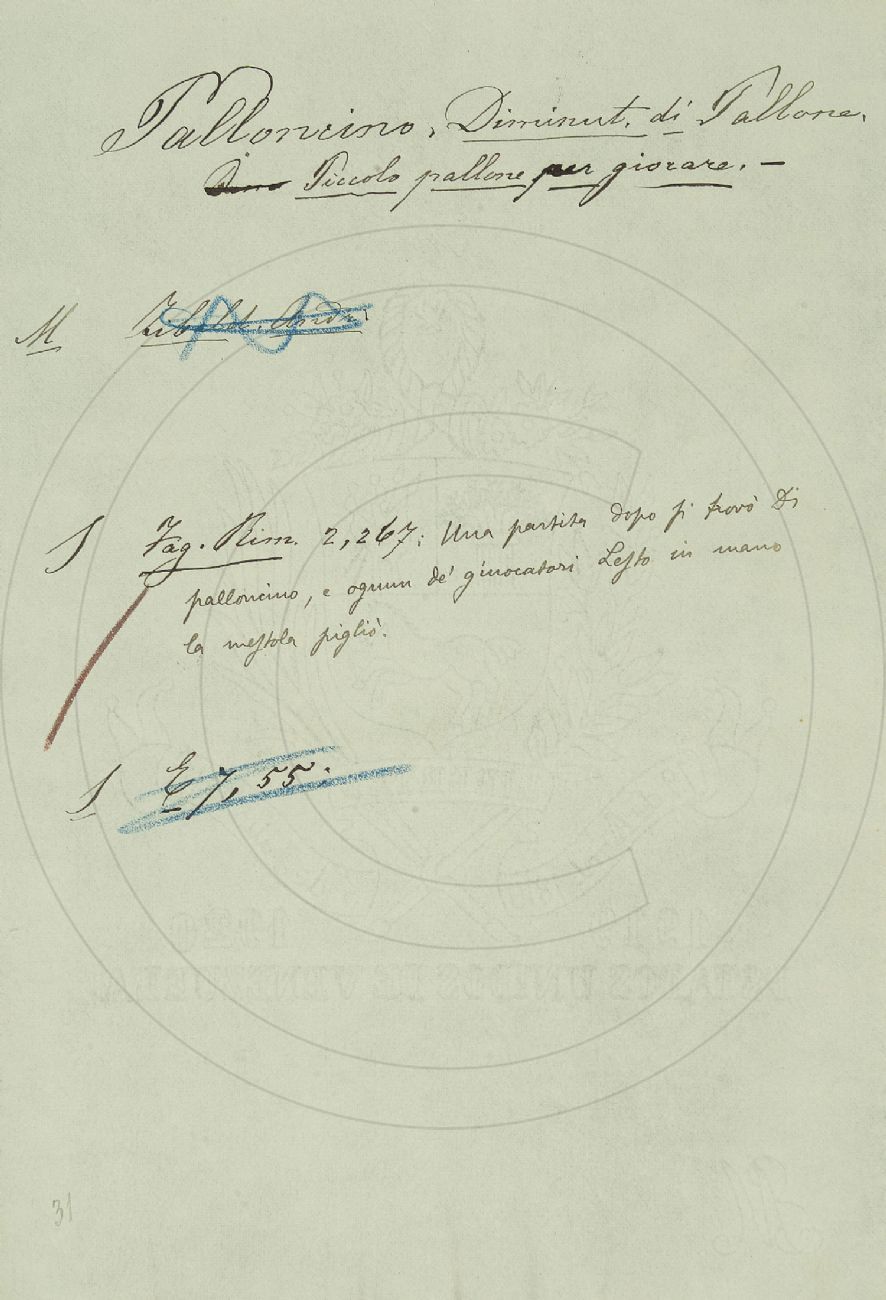 Palloncino. Diminut. di Pallone.
Piccolo pallone per giocare. —
M Zibald. Andr.
S Fag. Rim. 2, 267: Una partita dopo si trovò Di
palloncino, e ognun de' giuocatori Lesto in mano
la mestola pigliò.
S E 7, 55:
31